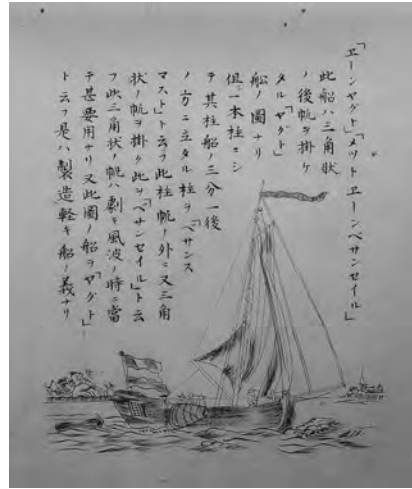 「ヱーンヤグト」「メットヱーンベサンセイル」
此船ハ三角状
ノ後帆ヲ掛ケ
タル「ヤグト」
船ノ圖ナリ
但一本柱ニシ
テ其柱船ノ三分一後
ノ方ニ立タル柱ヲ「ベサンス
マスト」ト云フ此柱帆ノ外ニ又三角
状ノ帆ヲ掛ク此ヲ「ベサンセイル」ト云
フ此三角状ノ帆ハ劇キ風波ノ時ニ當
テ甚要用ナリ又此圖ノ船ヲ「ヤグト」
ト云フ是ハ製造軽キ船ノ義ナリ